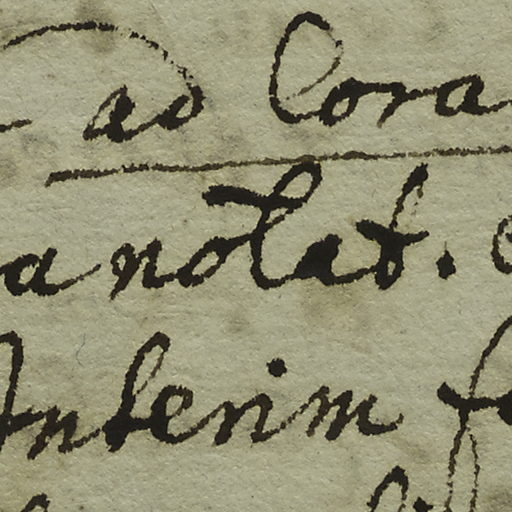 ad Cora
a nolat.
Interim